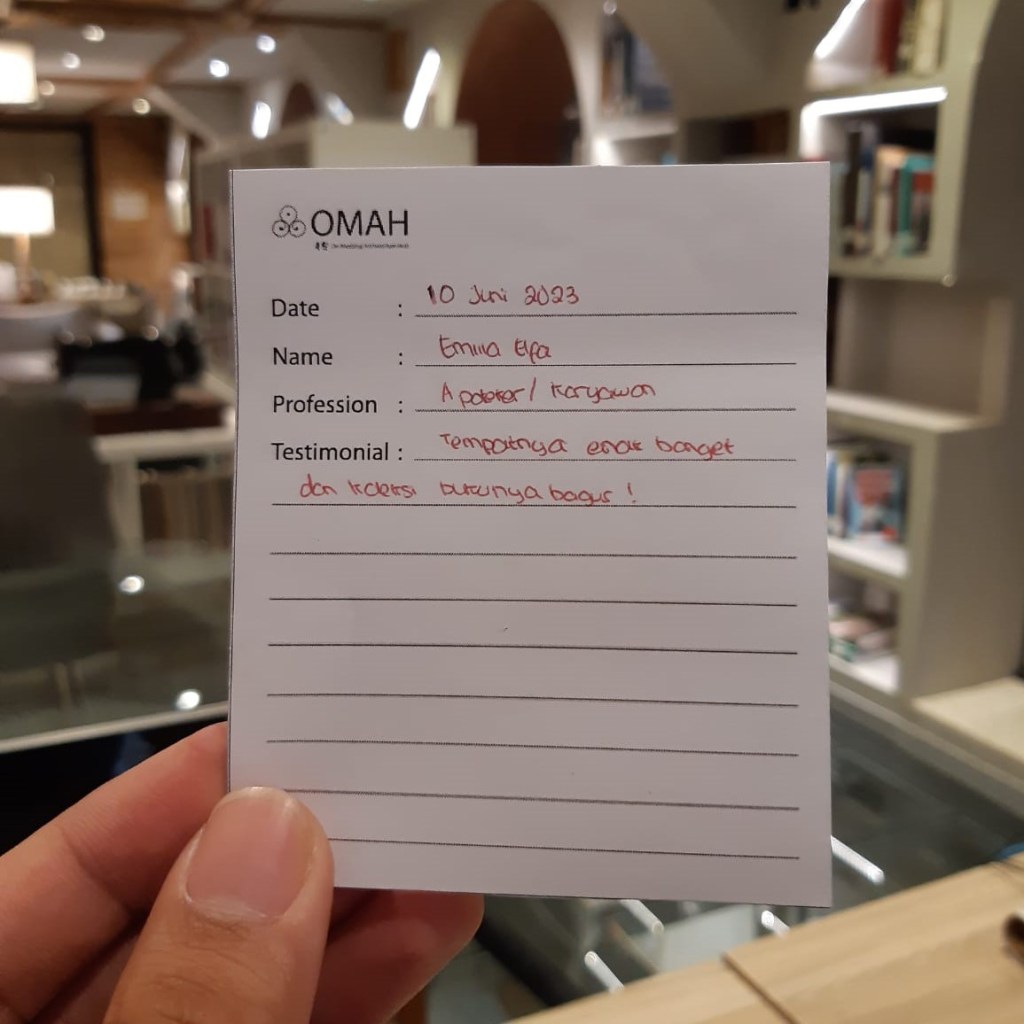 OMAH
Date : 10 Juni 2023
Name : Emilia Elfa
Profession : Apoteker / Karyawan
Testimonial : Tempatnya enak banget
dan koleksi bukunya bagus !